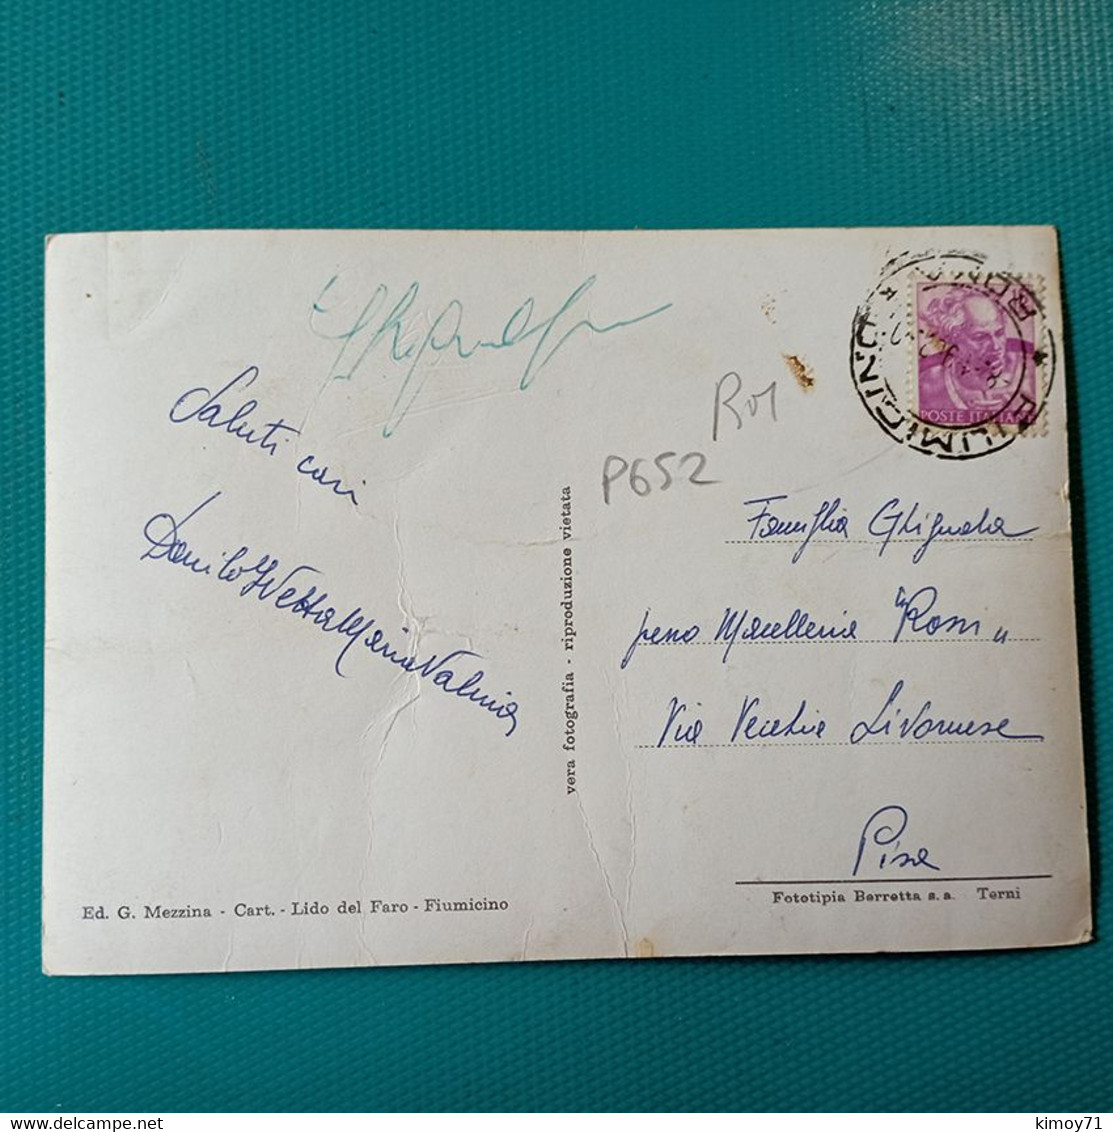 Saluti cari
Danilo Ivetta Maria Valeria
ROMA
FIUMICINO
POSTE ITALIANE
P652
Famiglia Ghignola
presso Macelleria "Rossi"
Via Vecchia Livornese
Pisa
vera fotografia - riproduzione vietata
Ed. G. Mezzina - Cart. - Lido del Faro - Fiumicino
Fototipia Berretta s. a. Terni
kimoy71